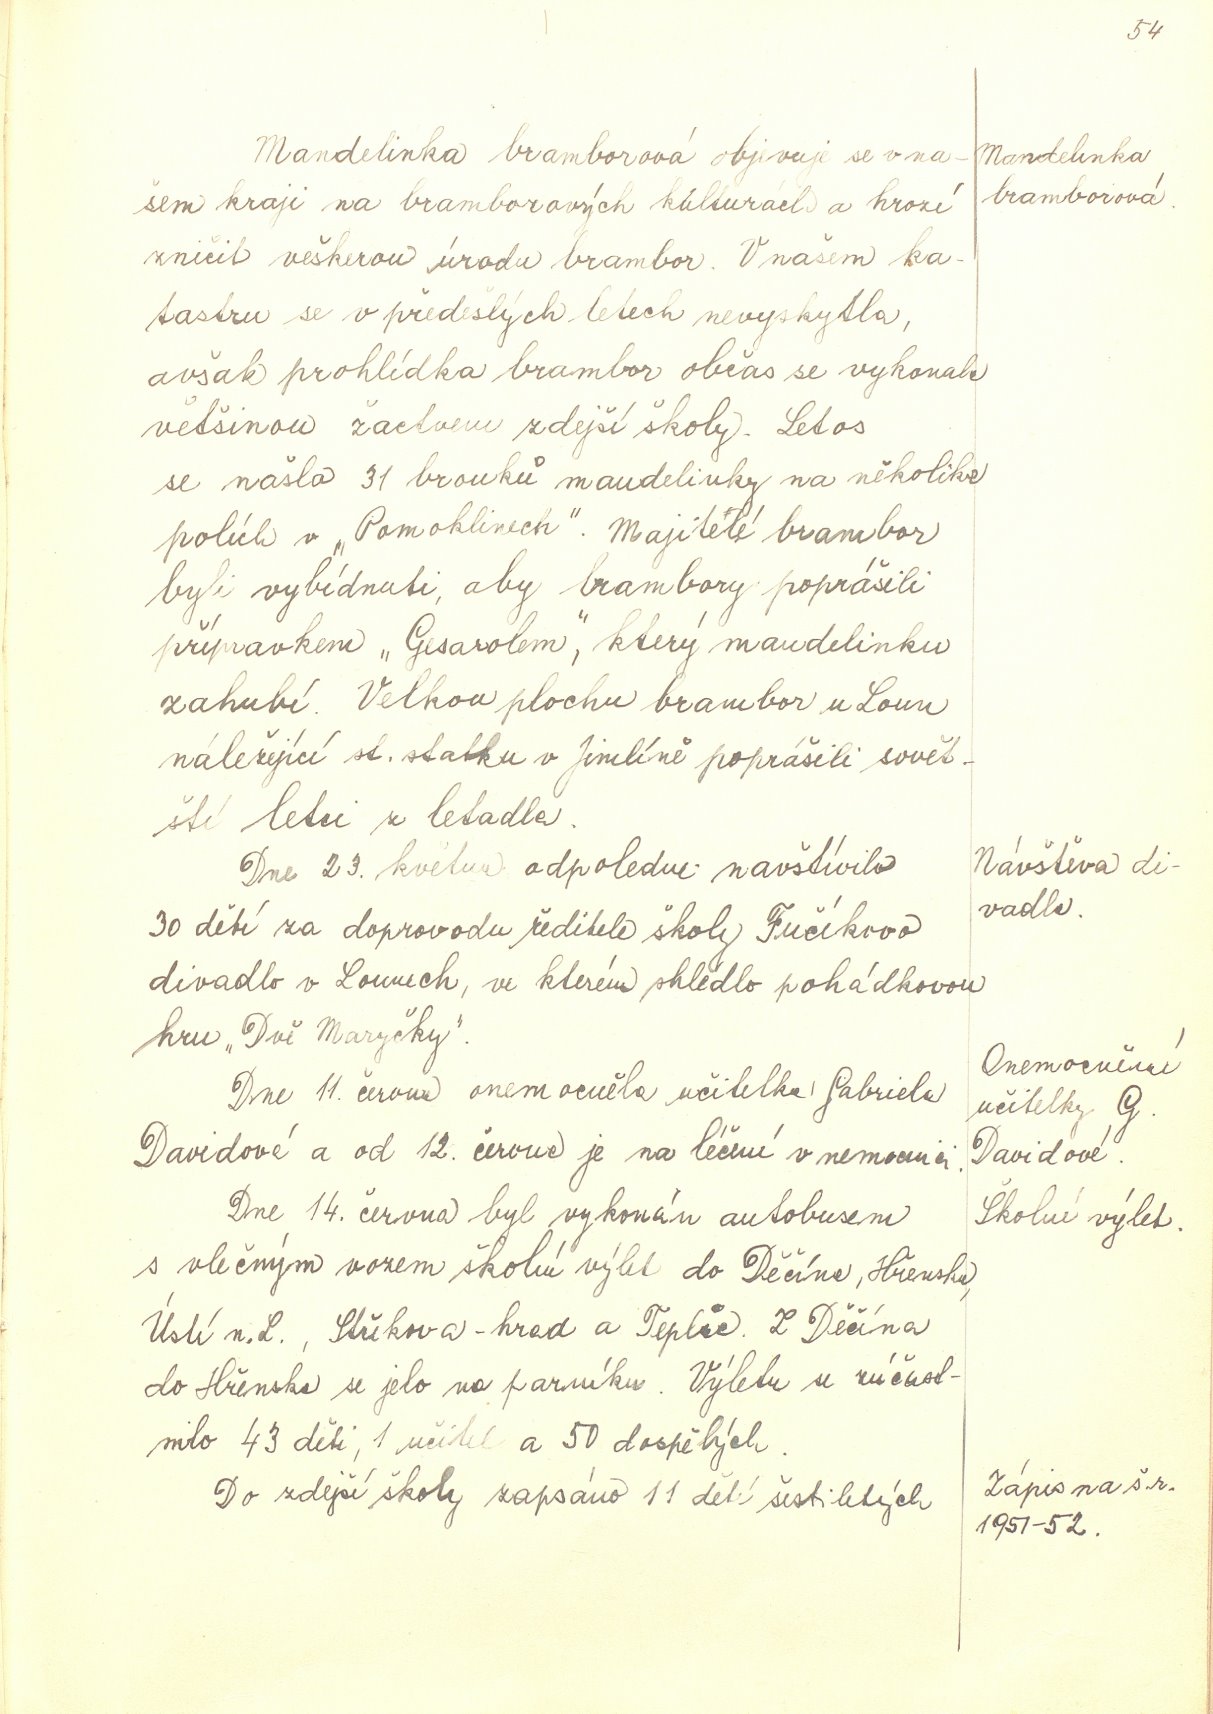 54
Mandelinka bramborová objevuje se v na-
šem kraji na bramborových kulturách a hrozí
zničit veškerou úrodu brambor. V našem ka-
tastru se v předešlých letech nevyskytla,
avšak prohlídka brambor občas se vykonala
většinou žactvem zdejší školy. Letos
se našlo 31 brouků mandelinky na několika
polích v „Pomoklinech". Majitelé brambor
byli vybídnuti, aby brambory poprášili
přípravkem „Gesarolem", který mandelinku
zahubí. Velkou plochu brambor u Loun
náležející st. statku v Jimlíně poprášili sovět-
ští letci z letadla.
Mandelinka
bramborová.
Dne 23. května odpoledne navštívilo
30 dětí za doprovodu ředitele školy Fučíkovo
divadlo v Lounech, ve kterém shlédlo pohádkovou
hru „Dvě Maryčky".
Návštěva di-
vadla.
Dne 11. června onemocněla učitelka Gabriela
Davidové a od 12. června je na léčení v nemocnici.
Onemocnění
učitelky G.
Davidové.
Dne 14. června byl vykonán autobusem
s vlečným vozem školní výlet do Děčína, Hřenska,
Ústí n.L., Střekova-hrad a Teplic. Z Děčína
do Hřenska se jelo na parníku. Výletu se zúčast-
nilo 43 dětí, 1 učitel a 50 dospělých.
Školní výlet.
Do zdejší školy zapsáno 11 dětí šestiletých
Zápis na š.r.
1951-52.